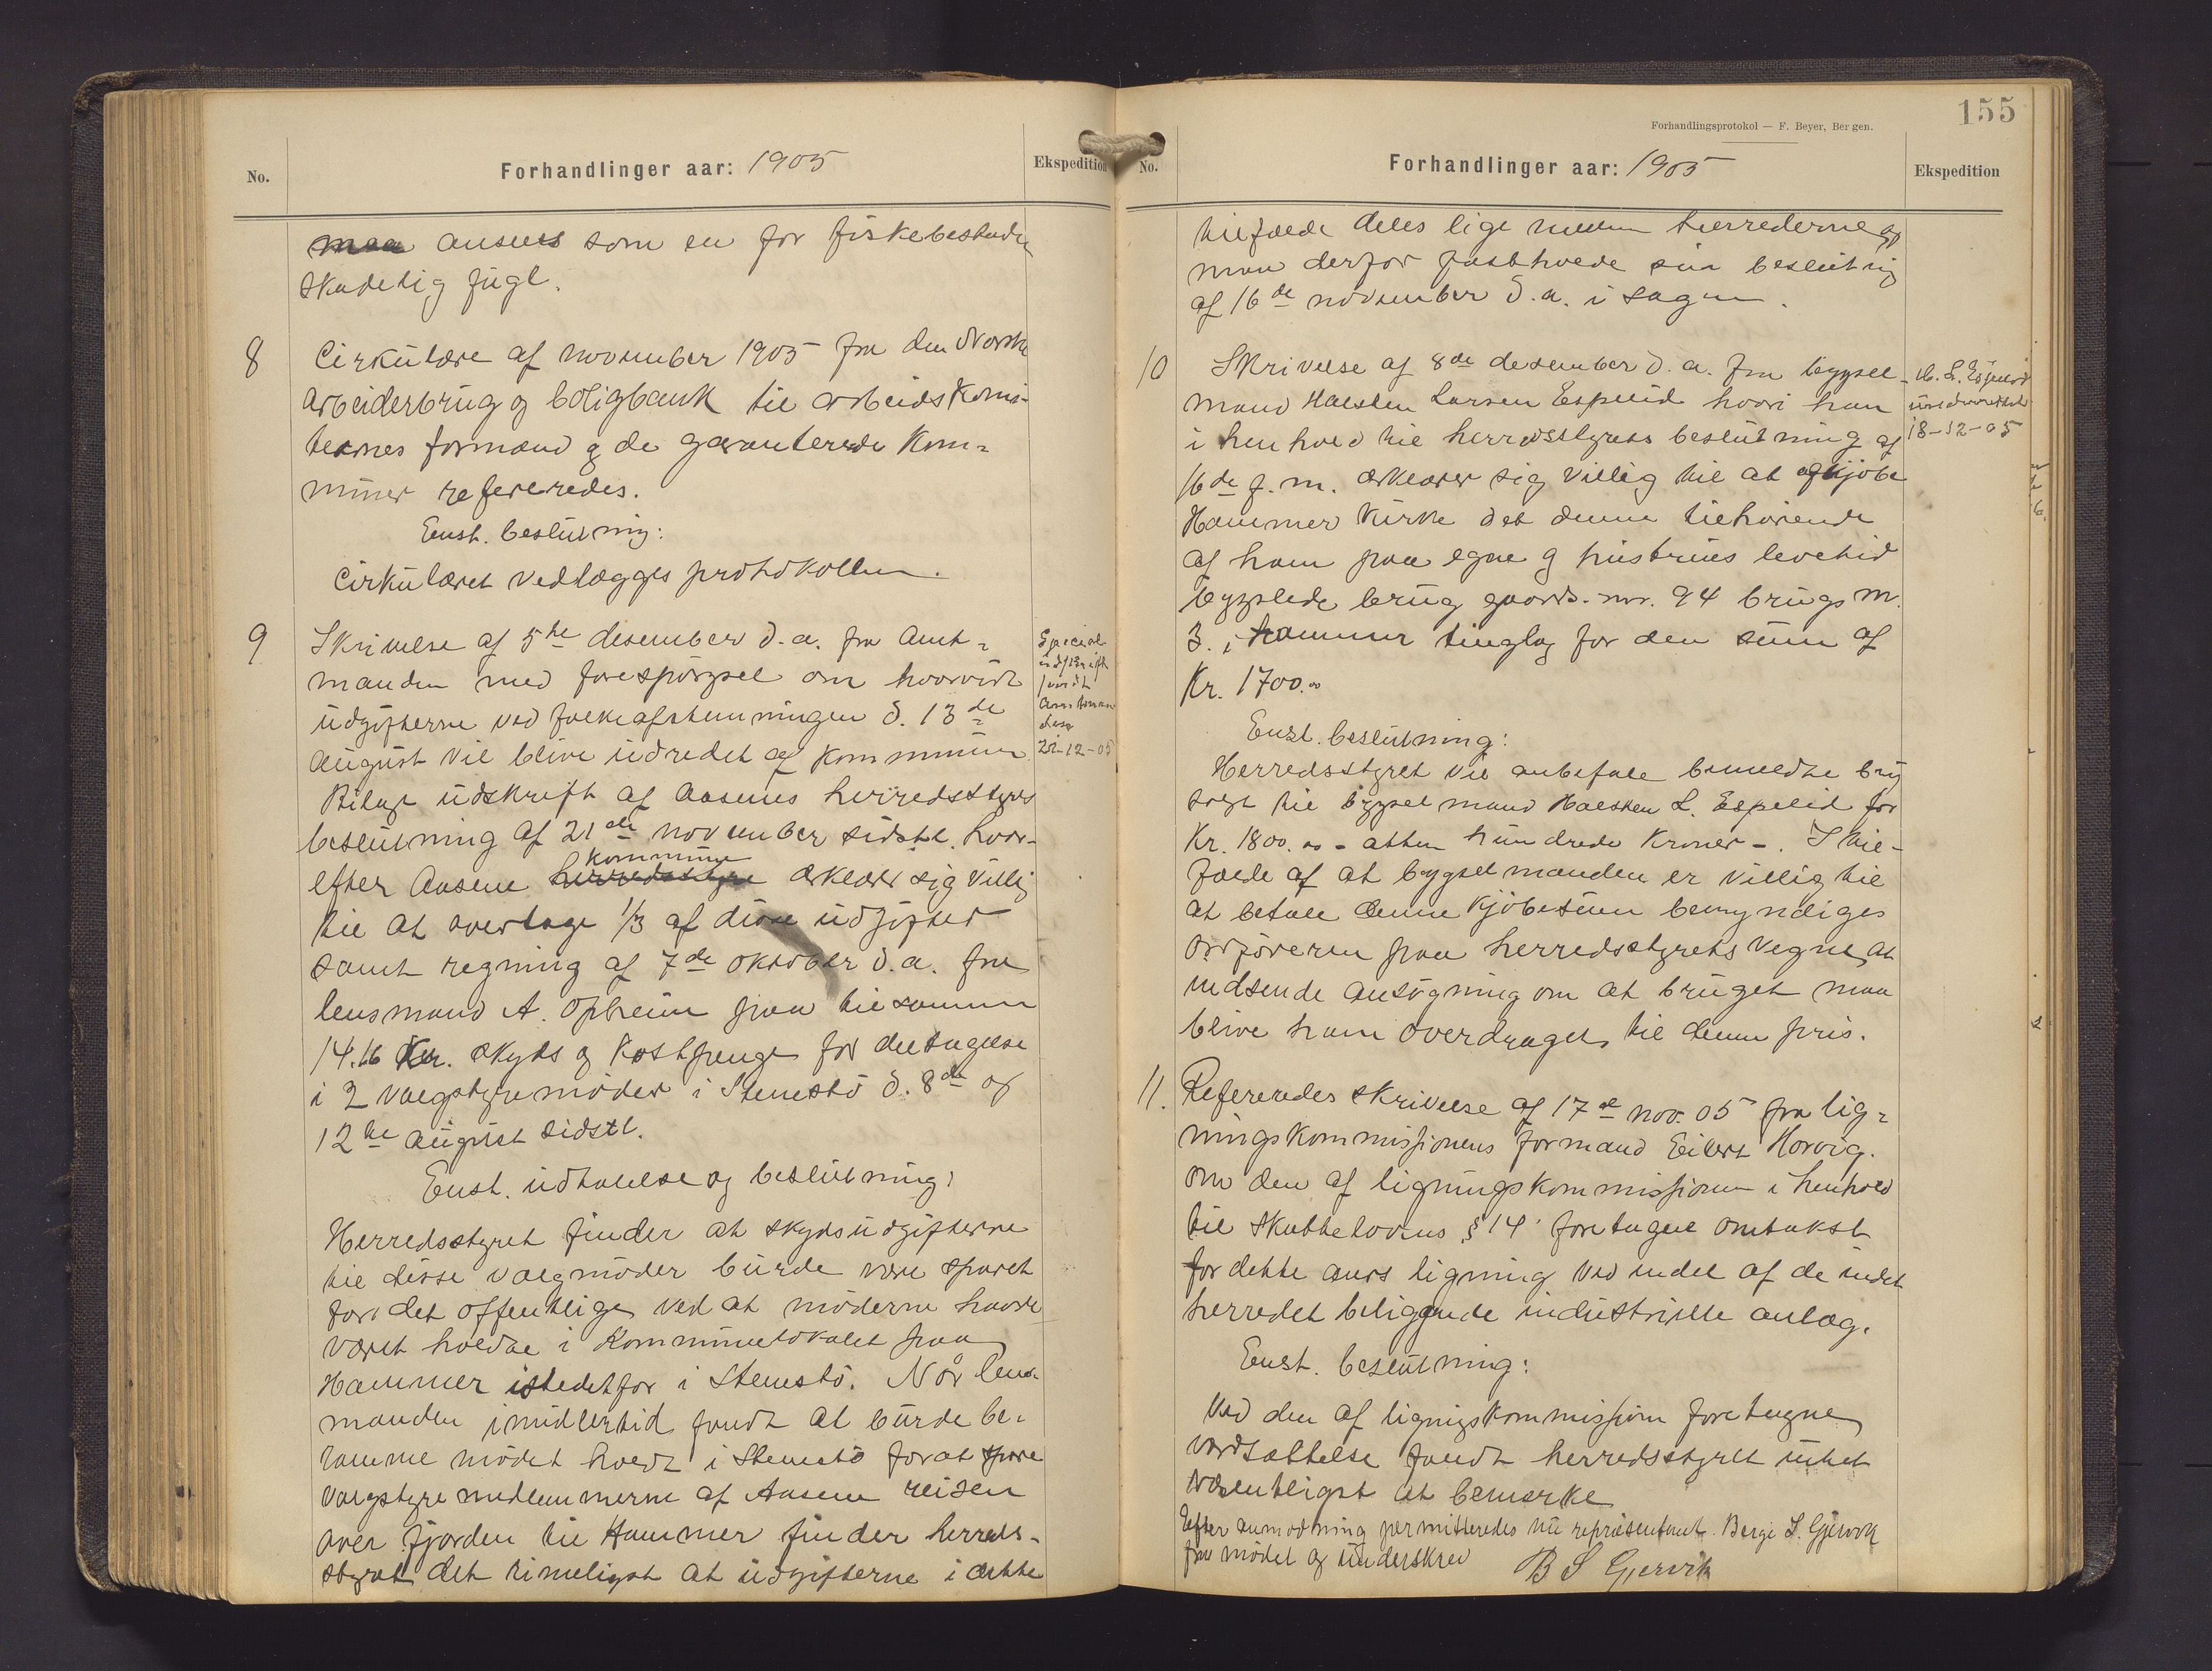 No.
Forhandlinger aar: 1905
Ekspedition
ansees som en for fiskebestanden
skadelig fugl.
8
Cirkulære af november 1905 fra den Norske
arbeiderbrug og boligbank til arbeidskomi-
teernes formænd og de garanterede kom-
muner refereredes.
Enst. beslutning:
Cirkulæret vedlægges protokollen.
9
Skrivelse af 5te desember d.a. fra amt-
manden med forespørgsel om hvorvidt
udgifterne ved folkeafstemningen d. 13de
august vil blive udredet af kommunen
Bilagt udskrift af Aasenes herredsstyres
beslutning af 21de november sidstl. hvor-
efter Aasene herredsstyre kommune erklærer sig villig
til at overtage 1/3 af disse udgifter
samt regning af 7de oktober d.a. fra
lensmand A. Opheim paa tilsammen
14.16 Kr. skyds og kostpenge for deltagelse
i 2 valgstyremøder i Stenestø d. 8de og
12te august sidstl.
Enst. udtalelse og beslutning:
Herredsstyret finder at skydsudgifterne
til disse valgmøder burde være sparet
for det offentlige ved at møderne havde
været holdne i kommunelokalet paa
Hammer istedetfor i Stenestø. Når lens-
manden imidlertid fandt at burde be-
ramme mødet holdt i Stenestø forat spare
valgstyremedlemmerne af Aasene reisen
over fjorden til Hammer finder herreds-
styret det rimeligst at udgifterne i dette
Special
udskrift
sendt
amtman
den
21-12-05
155
Forhandlingsprotokol — F. Beyer, Bergen.
No.
Forhandlinger aar: 1905
Ekspedition
tilfælde deles lige mellem herrederne og
man derfor fastholde sin beslutning
af 16de november d.a. i sagen.
10
Skrivelse af 8de desember d.a. fra bygsel-
mand Halsten Larsen Espelid hvori han
i henhold til herredsstyrets beslutning af
16de f.m. erklærer sig villig til at afkjøbe
Hammer kirke det denne tilhørende
af ham paa egne og hustrues levetid
bygslede brug gaards-nr. 94 brugs nr.
3. i hammer tinglag for den sum af
Kr. 1700.00
Enst. beslutning:
Herredsstyret vil anbefale bemeldte brug
solgt til bygselmand Halsten L. Espelid for
Kr. 1800.00 - atten hundrede kroner -. I til-
fælde af at bygselmanden er villig til
at betale denne kjøbesum bemyndiges
ordføreren paa herredsstyrets vegne at
indsende ansøgning om at bruget maa
blive ham overdraget til denne pris.
H. L. Espelid
underrettet
18-12-05
11.
Refereredes skrivelse af 17de nov. 05 fra lig-
ningskommissionens formand Eilert Horvig.
om den af ligningskommissionen i henhold
til skattelovens § 14 foretagne omtakst
for dette aars ligning ved endel af de indet
herredet beliggende industrielle anlæg.
Enst. beslutning:
Ved den af ligningskommission foretagne
værdsættelse fandt herredsstyret intet
væsentligst at bemerke
Efter anmodning permitteredes nu repræsentant. Berge S. Gjervik
fra mødet og underskrev
B S Gjervik